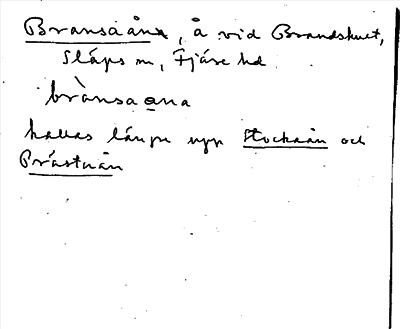 Bransaåna, å vid Brandshult,
Släps sn, Fjäre hd
brànsaana
kallas längre upp Stockaån och
Prästaån